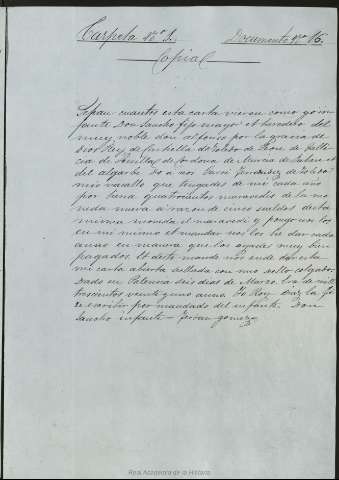 Carpeta nº 1. Documento nº 16.
Copia
Sepan cuantos esta carta vieren como yo in
fante Don Sancho fijo mayor et heredero del
muy noble don alfonso por la gracia de
dios Rey de Castiella de Toledo de Leon de Galli
cia de Sevilla de Cordova de Murcia de Jahen et
del algarbe do a vos Garci Gutierrez de Toledo
mio vasallo que tengades de mi cada año
por tierra quatrocientos maravedis de la mo
neda nueva a razon de cinco sueldos desta
misma moneda el maravedi y pongo vos los
en mi mismo et mandar vos los he dar cada
anno en manera que los ayades muy bien
pagados. Et desto mande vos ende dar esta
mi carta abierta sellada con mio sello colgado.
Dada en Palencia seis dias de Marzo. Era de mill
trescientos veinte y uno anno. Yo Roy Diaz la fi
ze escribir por mandado del infante. Don
Sancho infante = Ferran gomez
Real Academia de la Historia